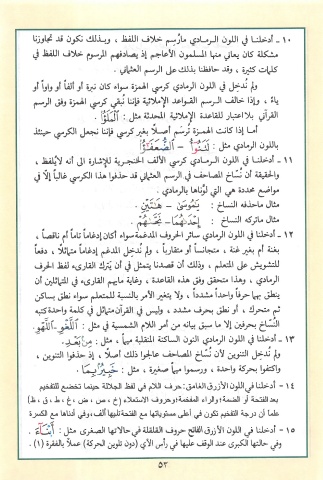 ١٠ - أدخلنا في اللون الرمادي مارُسِم خلاف اللفظ ، وبـذلك نكون قد تجاوزنا
مشكلة كان يعاني منها المسلمون الأعاجم إذ يصادفهم المرسوم خلاف اللفظ في
كلمات كثيرة ، وقد حافظنا بذلك على الرسم العثماني .
ولم نُدخِل في اللون الرمادي كرسي الهمزة سواء كان نبرة أو ألفاً أو واواً أو
ياءً ، وإذا خالف الرسم القواعد الإملائية فإننا نُبقي كرسي الهمزة وفق الرسم
القرآني بلا اعتبار للقاعدة الإملائية المحدثة مثل : اَلْمَلَؤُاْ .
أمـا إذا كانت الهمزة تُرسَم أصلاً بغير كرسي فإننا نجعل الكرسي حينئذ
باللون الرمادي مثل : - اَلضُّعَفَٰٓؤُاْ
١١ - أدخلنا في اللون الرمـادي كرسي الألف الخنجرية للإشارة الى أنه لايُلفظ ،
والحقيقة أن نُسَّاخ المصاحف في الرسم العثماني قد حذفوا هذا الكرسي غالباً إلّا في
مواضع محددة هي التي لوَّناها بالرمادي .
مثال ماحذفه النساخ : يَٰمُوسَىٰ - هَٰتَيْنِ .
مثال ماتركه النساخ : إِحْدَىٰهُمَا -
١٢ - أدخلنا في اللون الرمادي سائر الحروف المدغمة سواء أكان إدغاماً تاماً أم ناقصاً ،
بغنة أم بغير غنة ، متجانساً أو متقارباً ، ولم نُدخِل المدغم إدغاماً متماثلاً ، دفعاً
للتشويش على المتعلم ، وذلك أن قصدنا يتمثل في أن يَترك القارىء لفظ الحرف
الرمادي ، وهذا متحقق وفق هذه القاعدة ، وغاية مايهم القارىء في المتماثلين أن
ينطق بها حرفاً واحداً مشدداً ، ولا يتغير الأمر بالنسبة للمتعلم سواء نطق بساكن
ثم متحرك ، أو نطق بحرف مشدد ، وليس في القرآن متماثلان في كلمة واحدة كتبه
النسَّاخ بحرفين إلا ما سبق بيانه من أمر اللام الشمسية في مثل : اللَّغْوِ - اللَّهْوِ .
١٣ - أدخلنا في اللون الرمادي النون الساكنة المنقلبة ميماً ، مثل : مِنۢ بَعْدِ .
ولم نُدخِل التنوين لأن نُسَّاخ المصاحف عالجوا ذلك أصلاً ، إذ حذفوا التنوين ،
واكتفوا بحركة واحدة ، ورسموا ميماً صغيرة ، مثل : خَبِيرًۢا بِمَا .
١٤ - أدخلنا في اللون الأزرق الغامق: حرف اللام في لفظ الجلالة حينما تخضع للتفخيم
بعد الفتحة أو الضمة؛ والراء المفخمة؛ وحروف الاستعلاء (خ ، ص ، ض ، غ ، ط ، ق ، ظ)
علما أن درجة التفخيم تكون في أعلى مستوياتها مع الفتحة تليها ألف، وفي أدناها مع الكسرة
١٥ - أدخلنا في اللون الأزرق الفاتح حروف القلقلة في حالاتها الصغرى مثل : أَبْنَآءَ .
وفي حالتها الكبرى عند الوقف عليها في رأس الآي (دون تلوين الحركة) عملاً بالفقرة (١) .
٥٣